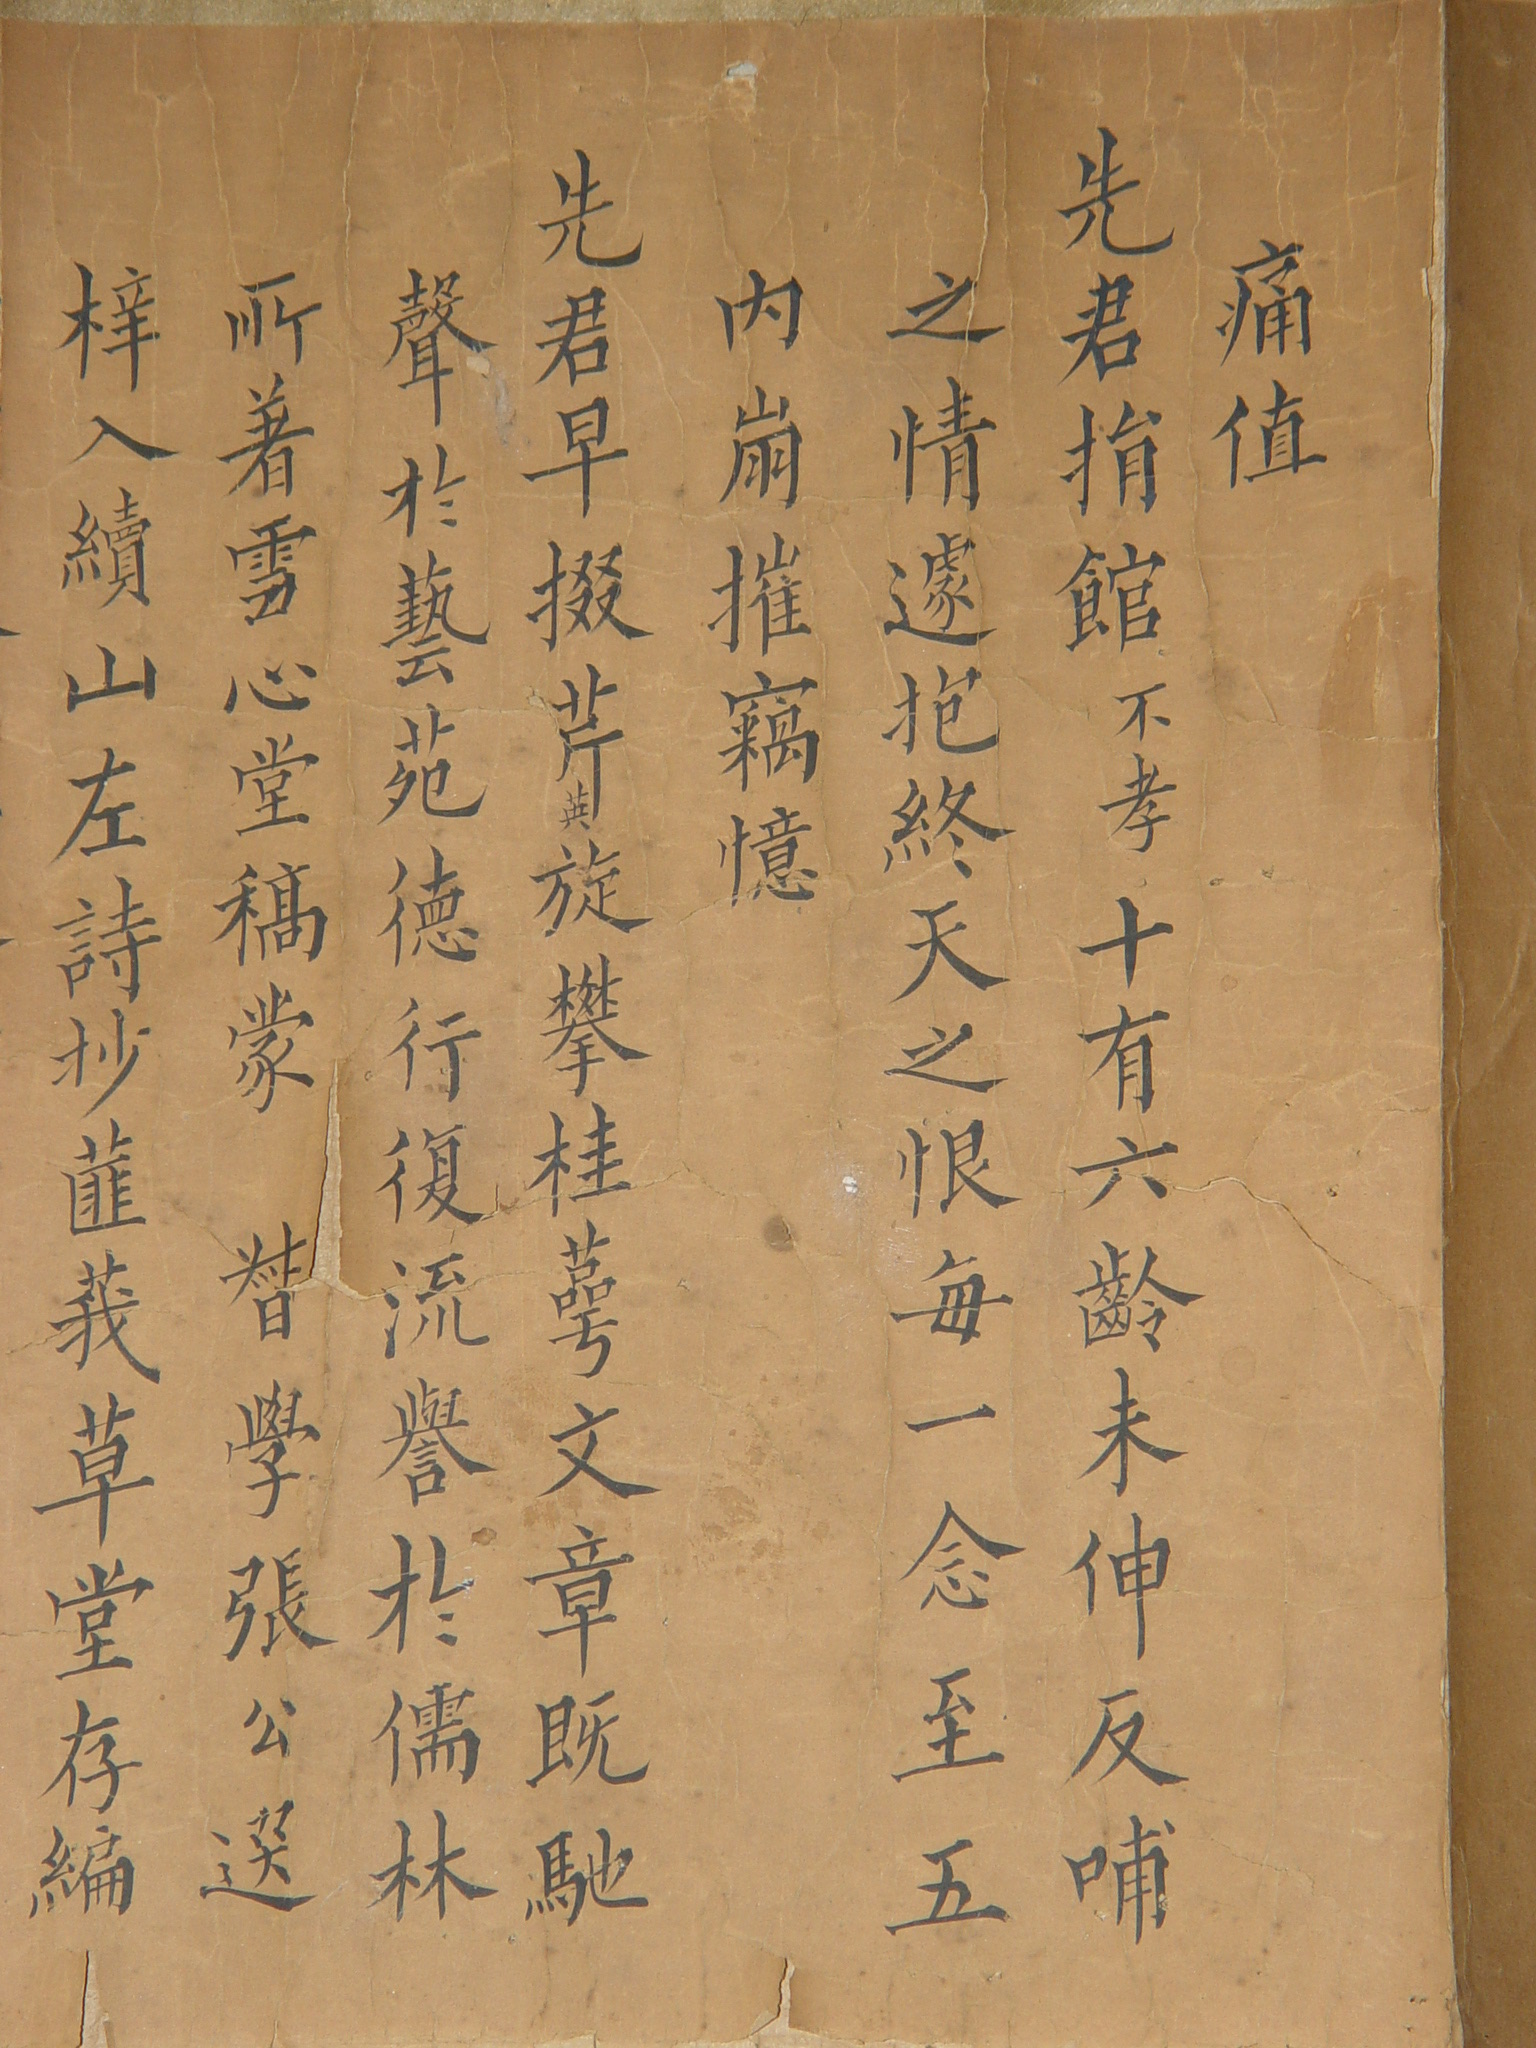 痛值
先君捐館不孝十有六齡未伸反哺
之情遽抱終天之恨每一念至五
內崩摧竊憶
先君早掇芹英旋攀桂萼文章既馳
聲於藝苑德行復流譽於儒林
所著雪心堂稿蒙 督學張公選
梓入續山左詩抄匪莪草堂存編